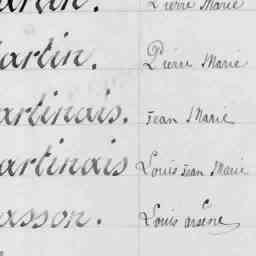 Pierre Marie
artin. Pierre Marie
artinais. Jean Marie
artinais Louis Jean Marie
asson. Louis arsène